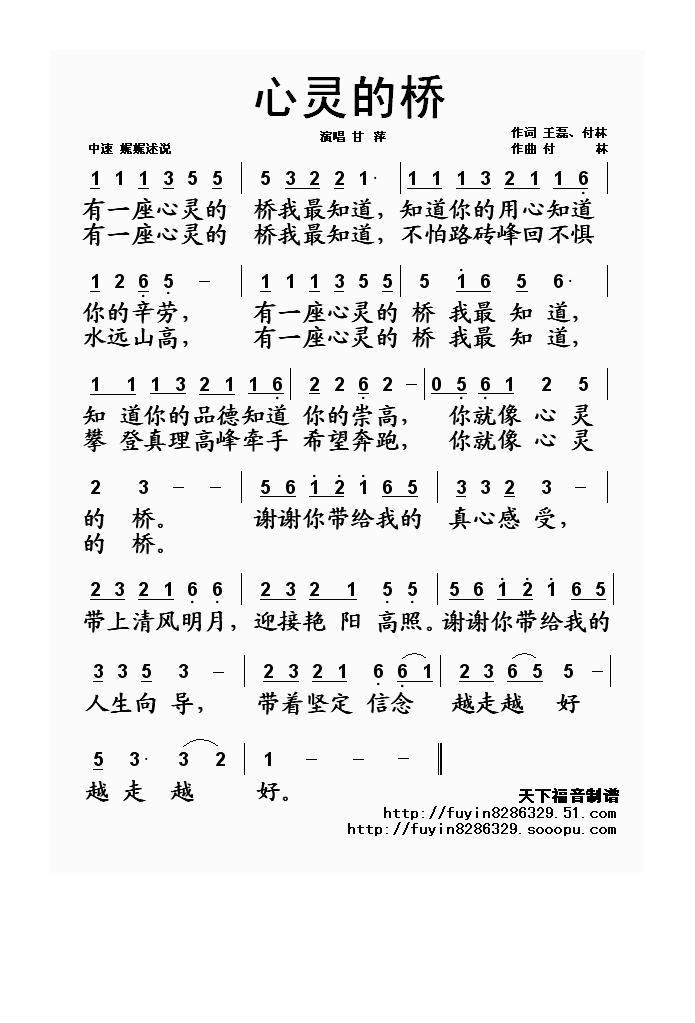 心灵的桥
演唱 甘 萍
作词 王磊、付林
中速 娓娓述说
作曲 付 林
1 1 1 3 5 5 | 5 3 2 2 1· | 1 1 1 3 2 1 1 6 |
有一座心灵的 桥我最知道，知道你的用心知道
有一座心灵的 桥我最知道，不怕路砖峰回不惧
1 2 6 5 － | 1 1 1 3 5 5 | 5 1 6 5 6· |
你的辛劳， 有一座心灵的 桥 我最 知 道，
水远山高， 有一座心灵的 桥 我最 知 道，
1 1 1 3 2 1 1 6 | 2 2 6 2 － | 0 5 6 1 2 5 |
知 道你的品德知道 你的崇高， 你就像 心 灵
攀 登真理高峰牵手 希望奔跑， 你就像 心 灵
2 3 － － | 5 6 1 2 1 6 5 | 3 3 2 3 － |
的 桥。 谢谢你带给我的 真心感 受，
的 桥。
2 3 2 1 6 6 | 2 3 2 1 5 5 | 5 6 1 2 1 6 5 |
带上清风明月，迎接艳 阳 高照。谢谢你带给我的
3 3 5 3 － | 2 3 2 1 6 6 1 | 2 3 6 5 5 － |
人生向 导， 带着坚定 信念 越走越 好
5 3· 3 2 | 1 － － － ‖
越 走 越 好。
天下福音制谱
http://fuyin8286329.51.com/
http://fuyin8286329.sooopu.com/